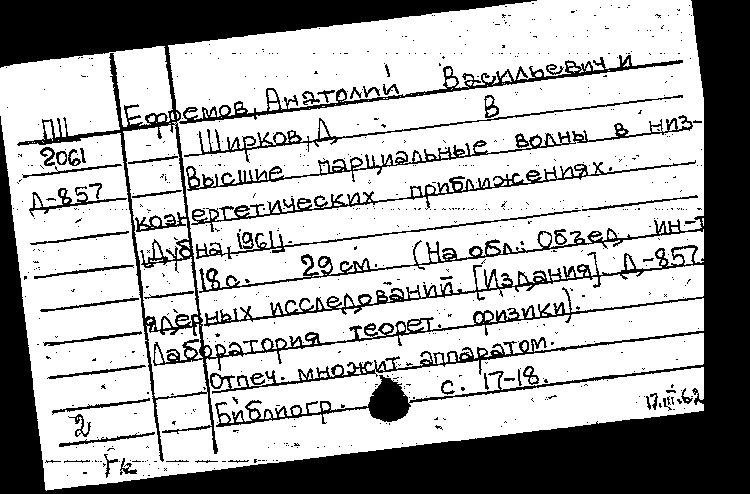 Ефремов, Анатолий Васильевич и
ПШ Ширков, Д. В
2061 Высшие парциальные волны в низ-
Д-857 коэнергетических приближениях.
[Дубна, 1961].
18 с. 29 см. (На обл.: Объед. ин-т
ядерных исследований. [Издания] Д-857.
Лаборатория теорет. физики).
Отпеч. множит. аппаратом.
Библиогр. с. 17-18.
2 17.III.62
Гк